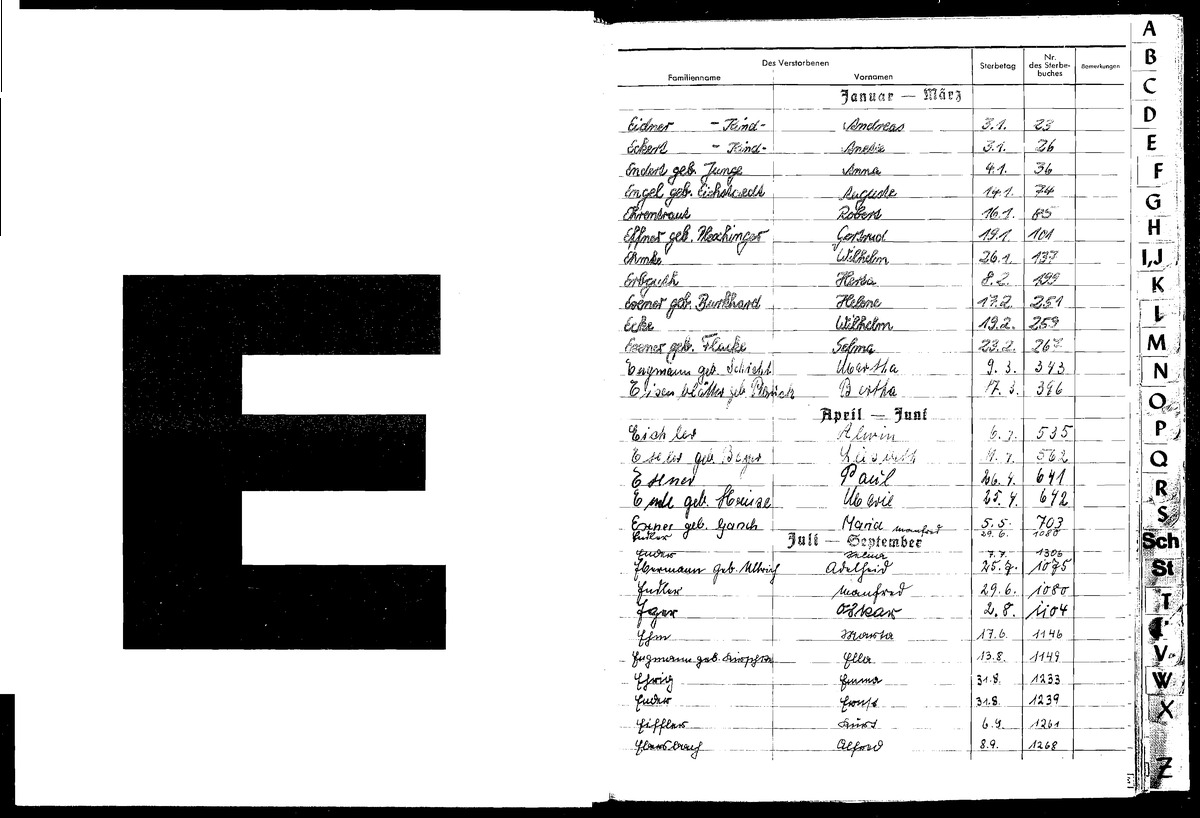 E
Des Verstorbenen
Familienname Vornamen Sterbetag Nr. des Sterbebuches Bemerkungen
Januar — März
Eidner - Kind- Andreas 3.1. 23
Eckert - Kind- 3.1. 26
Endert geb. Junge Anna 4.1. 36
Engel geb. Eichstaedt Auguste 14.1. 74
Ehrentraut Robert 16.1. 85
Effner geb. Gertrud 19.1. 101
Ehmke Wilhelm 26.1. 137
Erbguth Herta 8.2. 199
Exener geb. Burkhard Helene 17.2. 251
Ecke Wilhelm 19.2. 259
Exener geb. Flacke Selma 23.2. 267
Engmann geb. Schicht Martha 9. 3. 343
geb. Bertha 17. 3. 396
April — Juni
Eichler Alwin 535
geb. Beyer 562
Exner Paul 26. 4. 641
Ende geb. Marie 25. 4. 642
Exner geb. Gasch Maria 5.5. 703
Endler Manfred 29. 6. 1080
Juli — September
Ender Selma 7.7. 1306
Ebermann geb. Ullrich Adelheid 25.7. 1075
Endler Manfred 29.6. 1080
Eger Oskar 2.8. 1104
Ehm Martha 17.6. 1146
Engmann geb. Ella 13.8. 1149
Ehrig Emma 31.8. 1233
Ender Ernst 31.8. 1239
Eiffler Kurt 6.9. 1261
Ebersbach Alfred 8.9. 1268
A
B
C
D
E
F
G
H
I,J
K
L
M
N
O
P
Q
R
S
Sch
St
T
V
W
X
Z